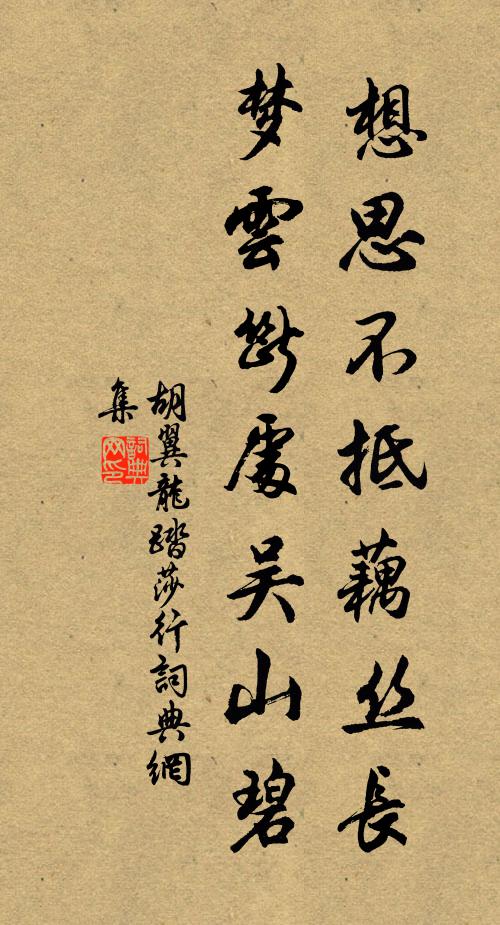 想思不抵藕丝長
梦雲斷處吴山碧
胡翼龍踏莎行詞典網
集
詞典网印